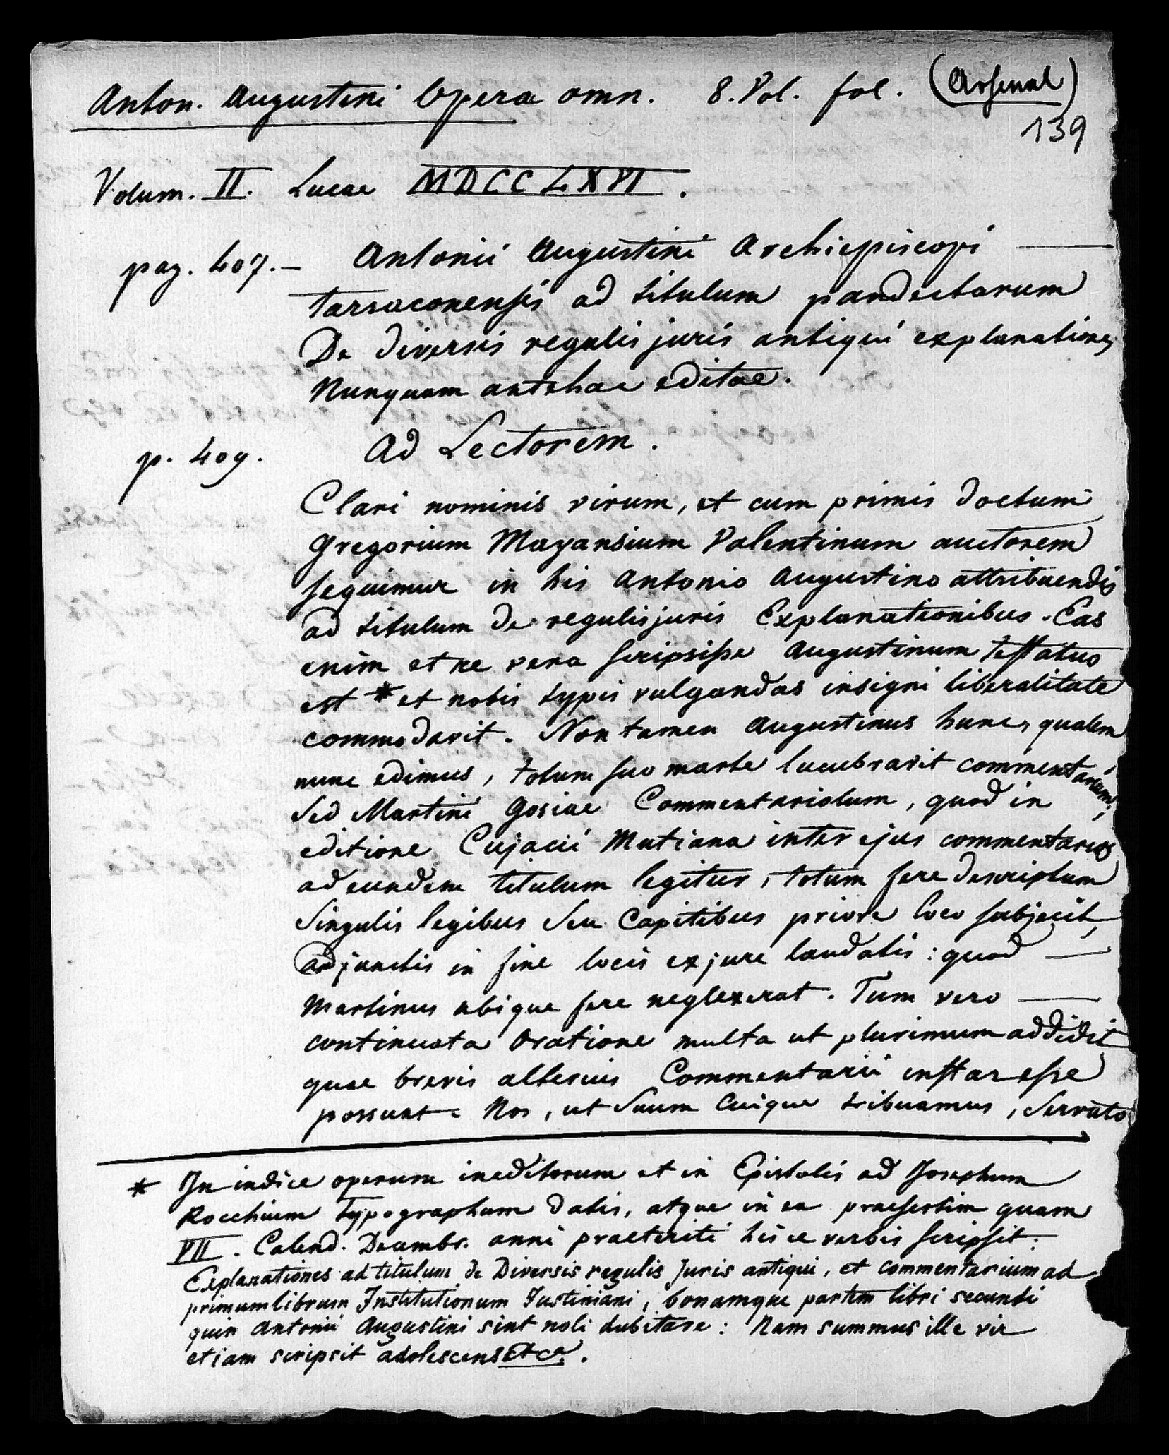 Anton. Augustini Opera omn. 8. Vol. fol. (Arsenal)
139
Volum. II. Lucae MDCCLXVI.
pag. 407. — Antonii Augustini Archiepiscopi —
tarraconensis ad titulum pandectarum
De diversis regulis juris antiqui explanationes
Nunquam antehac editae.
p. 409. Ad Lectorem.
Clari nominis virum, et cum primis doctum
Gregorium Mayansium Valentinum auctorem
sequimur in his Antonio Augustino attribuendis
ad titulum de regulis juris Explanationibus. Eas
enim et re vera scripsisse Augustinum testatus
est * et nobis typis vulgandas insigni liberalitate
commodavit. Non tamen Augustinus hunc, qualem
nunc edimus, totum suo marte lucubravit commentarium;
Sed Martini Gosiae Commentariolum, quod in
editione Cujacii Mutiana inter ejus commentarios
ad eundem titulum legitur, totum fere descriptum
Singulis legibus seu Capitibus priore loco subjecit,
adjunctis in fine locis ex jure laudatis: quod —
Martinus ubique fere neglexerat. Tum vero —
continuata Oratione multa ut plurimum addidit
quae brevis alterius Commentarii instar esse
possunt. Nos, ut Suum Cuique tribuamus, Servato
* In indice operum ineditorum et in Epistolis ad Josephum
Rocchium typographum datis, atque in ea praesertim quam
VII. Calend. Decembr. anni praeteriti hisce verbis scripsit:
Explanationes ad titulum de Diversis regulis Juris antiqui, et commentarium ad
primum librum Institutionum Justiniani, bonamque partem libri secundi
quin Antonii Augustini sint noli dubitare: Nam summus ille vir
etiam scripsit adolescens etca.